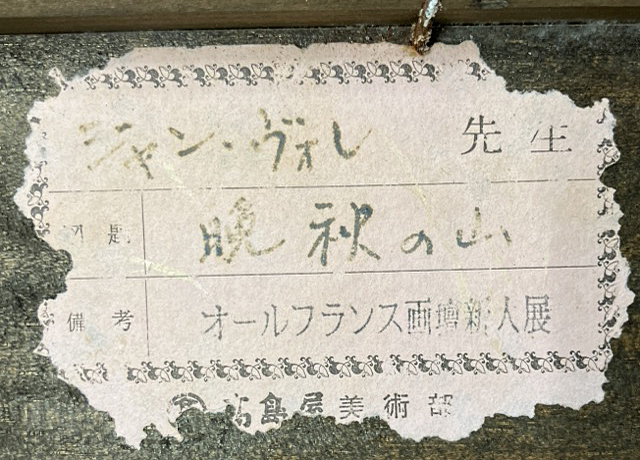 ジャン・ヴォレ 先生
画題 晩秋の山
備考 オールフランス画壇新人展
髙島屋美術部